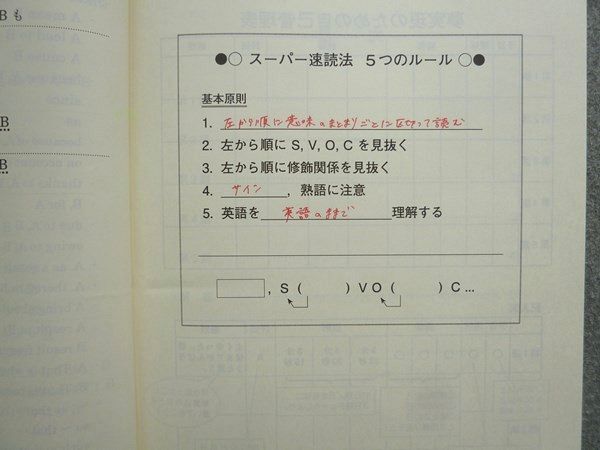 B も
B
B
●○ スーパー速読法 5つのルール ○●
基本原則
1. 左から順に意味のまとまりごとに区切って読む
2. 左から順に S, V, O, C を見抜く
3. 左から順に修飾関係を見抜く
4. サイン, 熟語に注意
5. 英語を 英語のままで 理解する
, S ( ) V O ( ) C ...